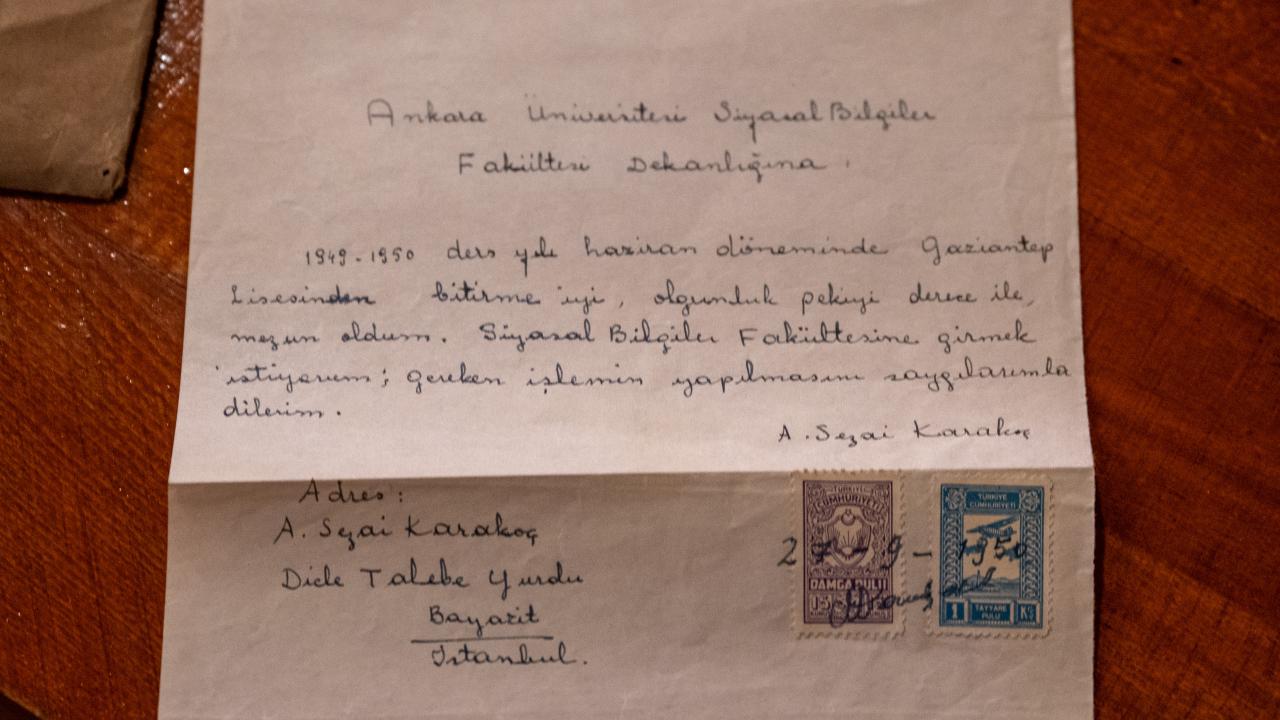 Ankara Üniversitesi Siyasal Bilgiler
Fakültesi Dekanlığına.
1949-1950 ders yılı haziran döneminde Gaziantep
Lisesinden bitirme iyi, olgunluk pekiyi derece ile,
mezun oldum. Siyasal Bilgiler Fakültesine girmek
istiyorum; gereken işlemin yapılmasını saygılarımla
dilerim.
A. Sezai Karakoç
Adres:
A. Sezai Karakoç
Dicle Talebe Yurdu
Bayazit
İstanbul.
27-9-1950
TÜRKİYE
CUMHURİYETİ
DAMGA PULU
15
TÜRKİYE
CUMHURİYETİ
1 TAYYARE PULU